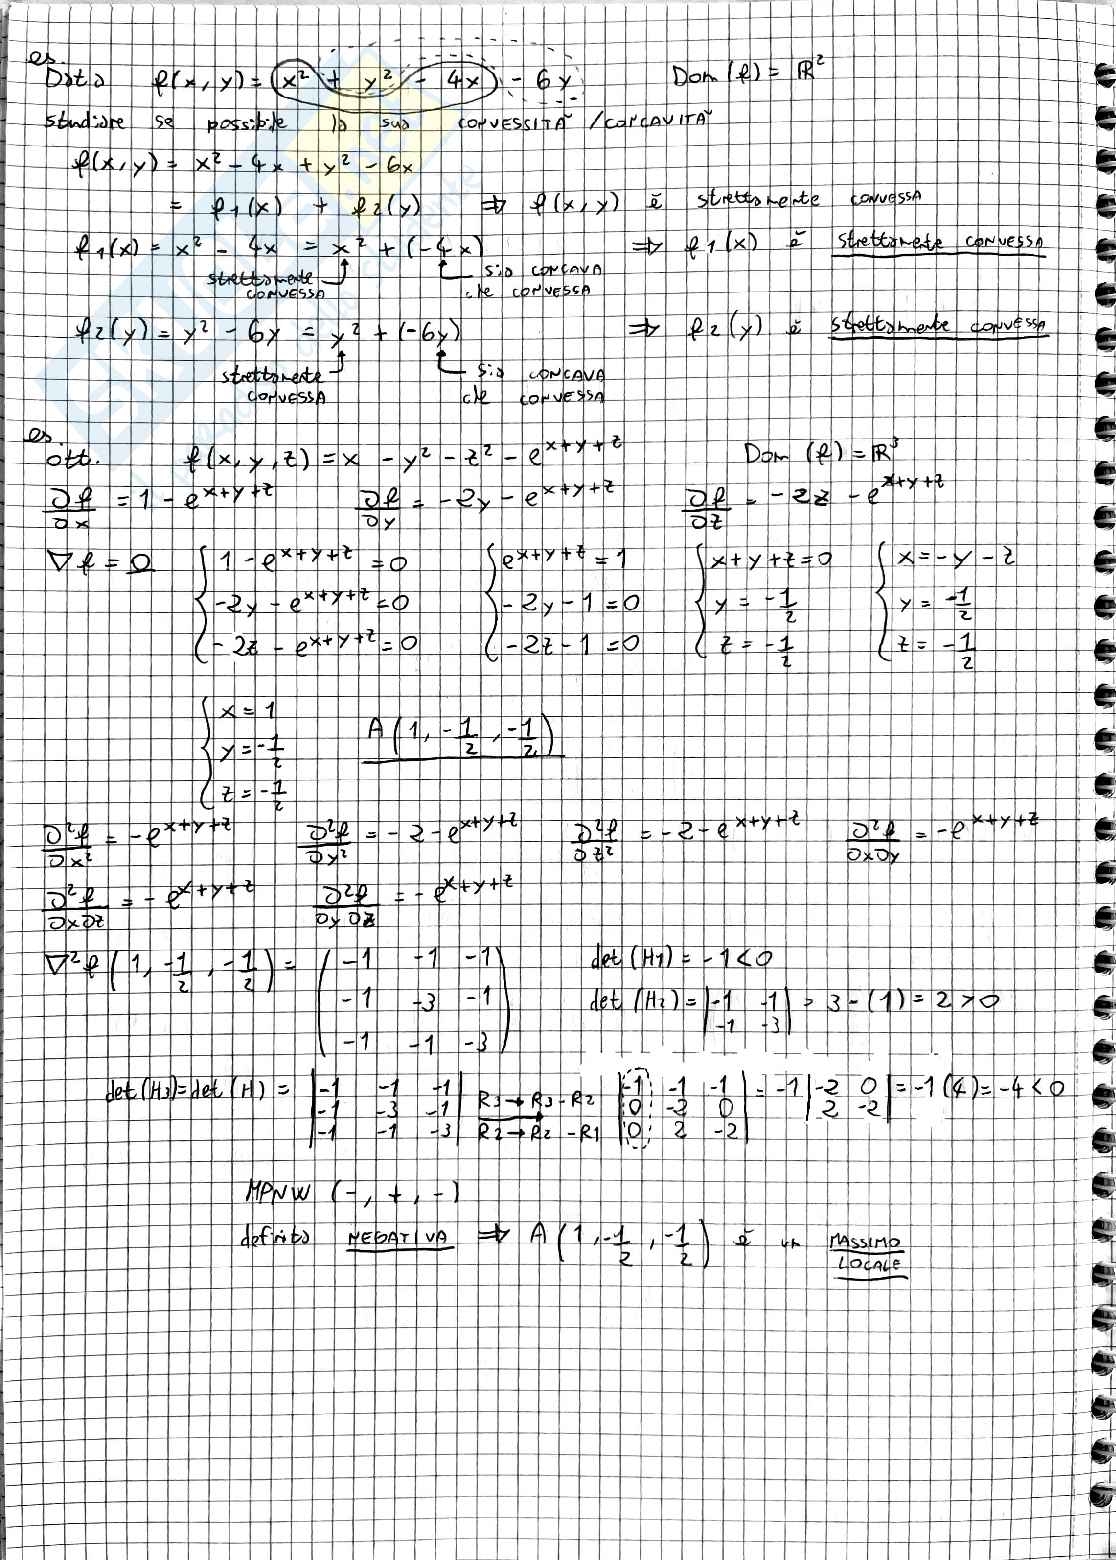 es.
Data f(x, y) = x² + y² - 4x - 6y Dom (f) = ℝ²
studiare se possibile la sua CONVESSITÀ / CONCAVITÀ
f(x, y) = x² - 4x + y² - 6x
= f1(x) + f2(y) ⇒ f(x, y) è strettamente CONVESSA
f1(x) = x² - 4x = x² + (-4x) ⇒ f1(x) è strettamente CONVESSA
strettamente CONVESSA sia CONCAVA che CONVESSA
f2(y) = y² - 6y = y² + (-6y) ⇒ f2(y) è strettamente CONVESSA
strettamente CONVESSA sia CONCAVA che CONVESSA
es.
ott. f(x, y, z) = x - y² - z² - e^(x+y+z) Dom (f) = ℝ³
∂f/∂x = 1 - e^(x+y+z) ∂f/∂y = -2y - e^(x+y+z) ∂f/∂z = -2z - e^(x+y+z)
∇f = 0 { 1 - e^(x+y+z) = 0 { e^(x+y+z) = 1 { x+y+z = 0 { x = -y - z
-2y - e^(x+y+z) = 0 -2y - 1 = 0 y = -1/2 y = -1/2
-2z - e^(x+y+z) = 0 -2z - 1 = 0 z = -1/2 z = -1/2
{ x = 1
y = -1/2 A(1, -1/2, -1/2)
z = -1/2
∂²f/∂x² = -e^(x+y+z) ∂²f/∂y² = -2 - e^(x+y+z) ∂²f/∂z² = -2 - e^(x+y+z) ∂²f/∂x∂y = -e^(x+y+z)
∂²f/∂x∂z = -e^(x+y+z) ∂²f/∂y∂z = -e^(x+y+z)
∇²f(1, -1/2, -1/2) = ( -1 -1 -1 det (H1) = -1 < 0
-1 -3 -1 det (H2) = | -1 -1 | = 3 - (1) = 2 > 0
-1 -1 -3 ) | -1 -3 |
det (H3) = det (H) = | -1 -1 -1 | | -1 -1 -1 | = -1 | -2 0 | = -1 (4) = -4 < 0
| -1 -3 -1 | R3 → R3 - R2 | 0 -2 0 | | 2 -2 |
| -1 -1 -3 | R2 → R2 - R1 | 0 2 -2 |
MPNW (-, +, -)
definita NEGATIVA ⇒ A(1, -1/2, -1/2) è un MASSIMO
LOCALE